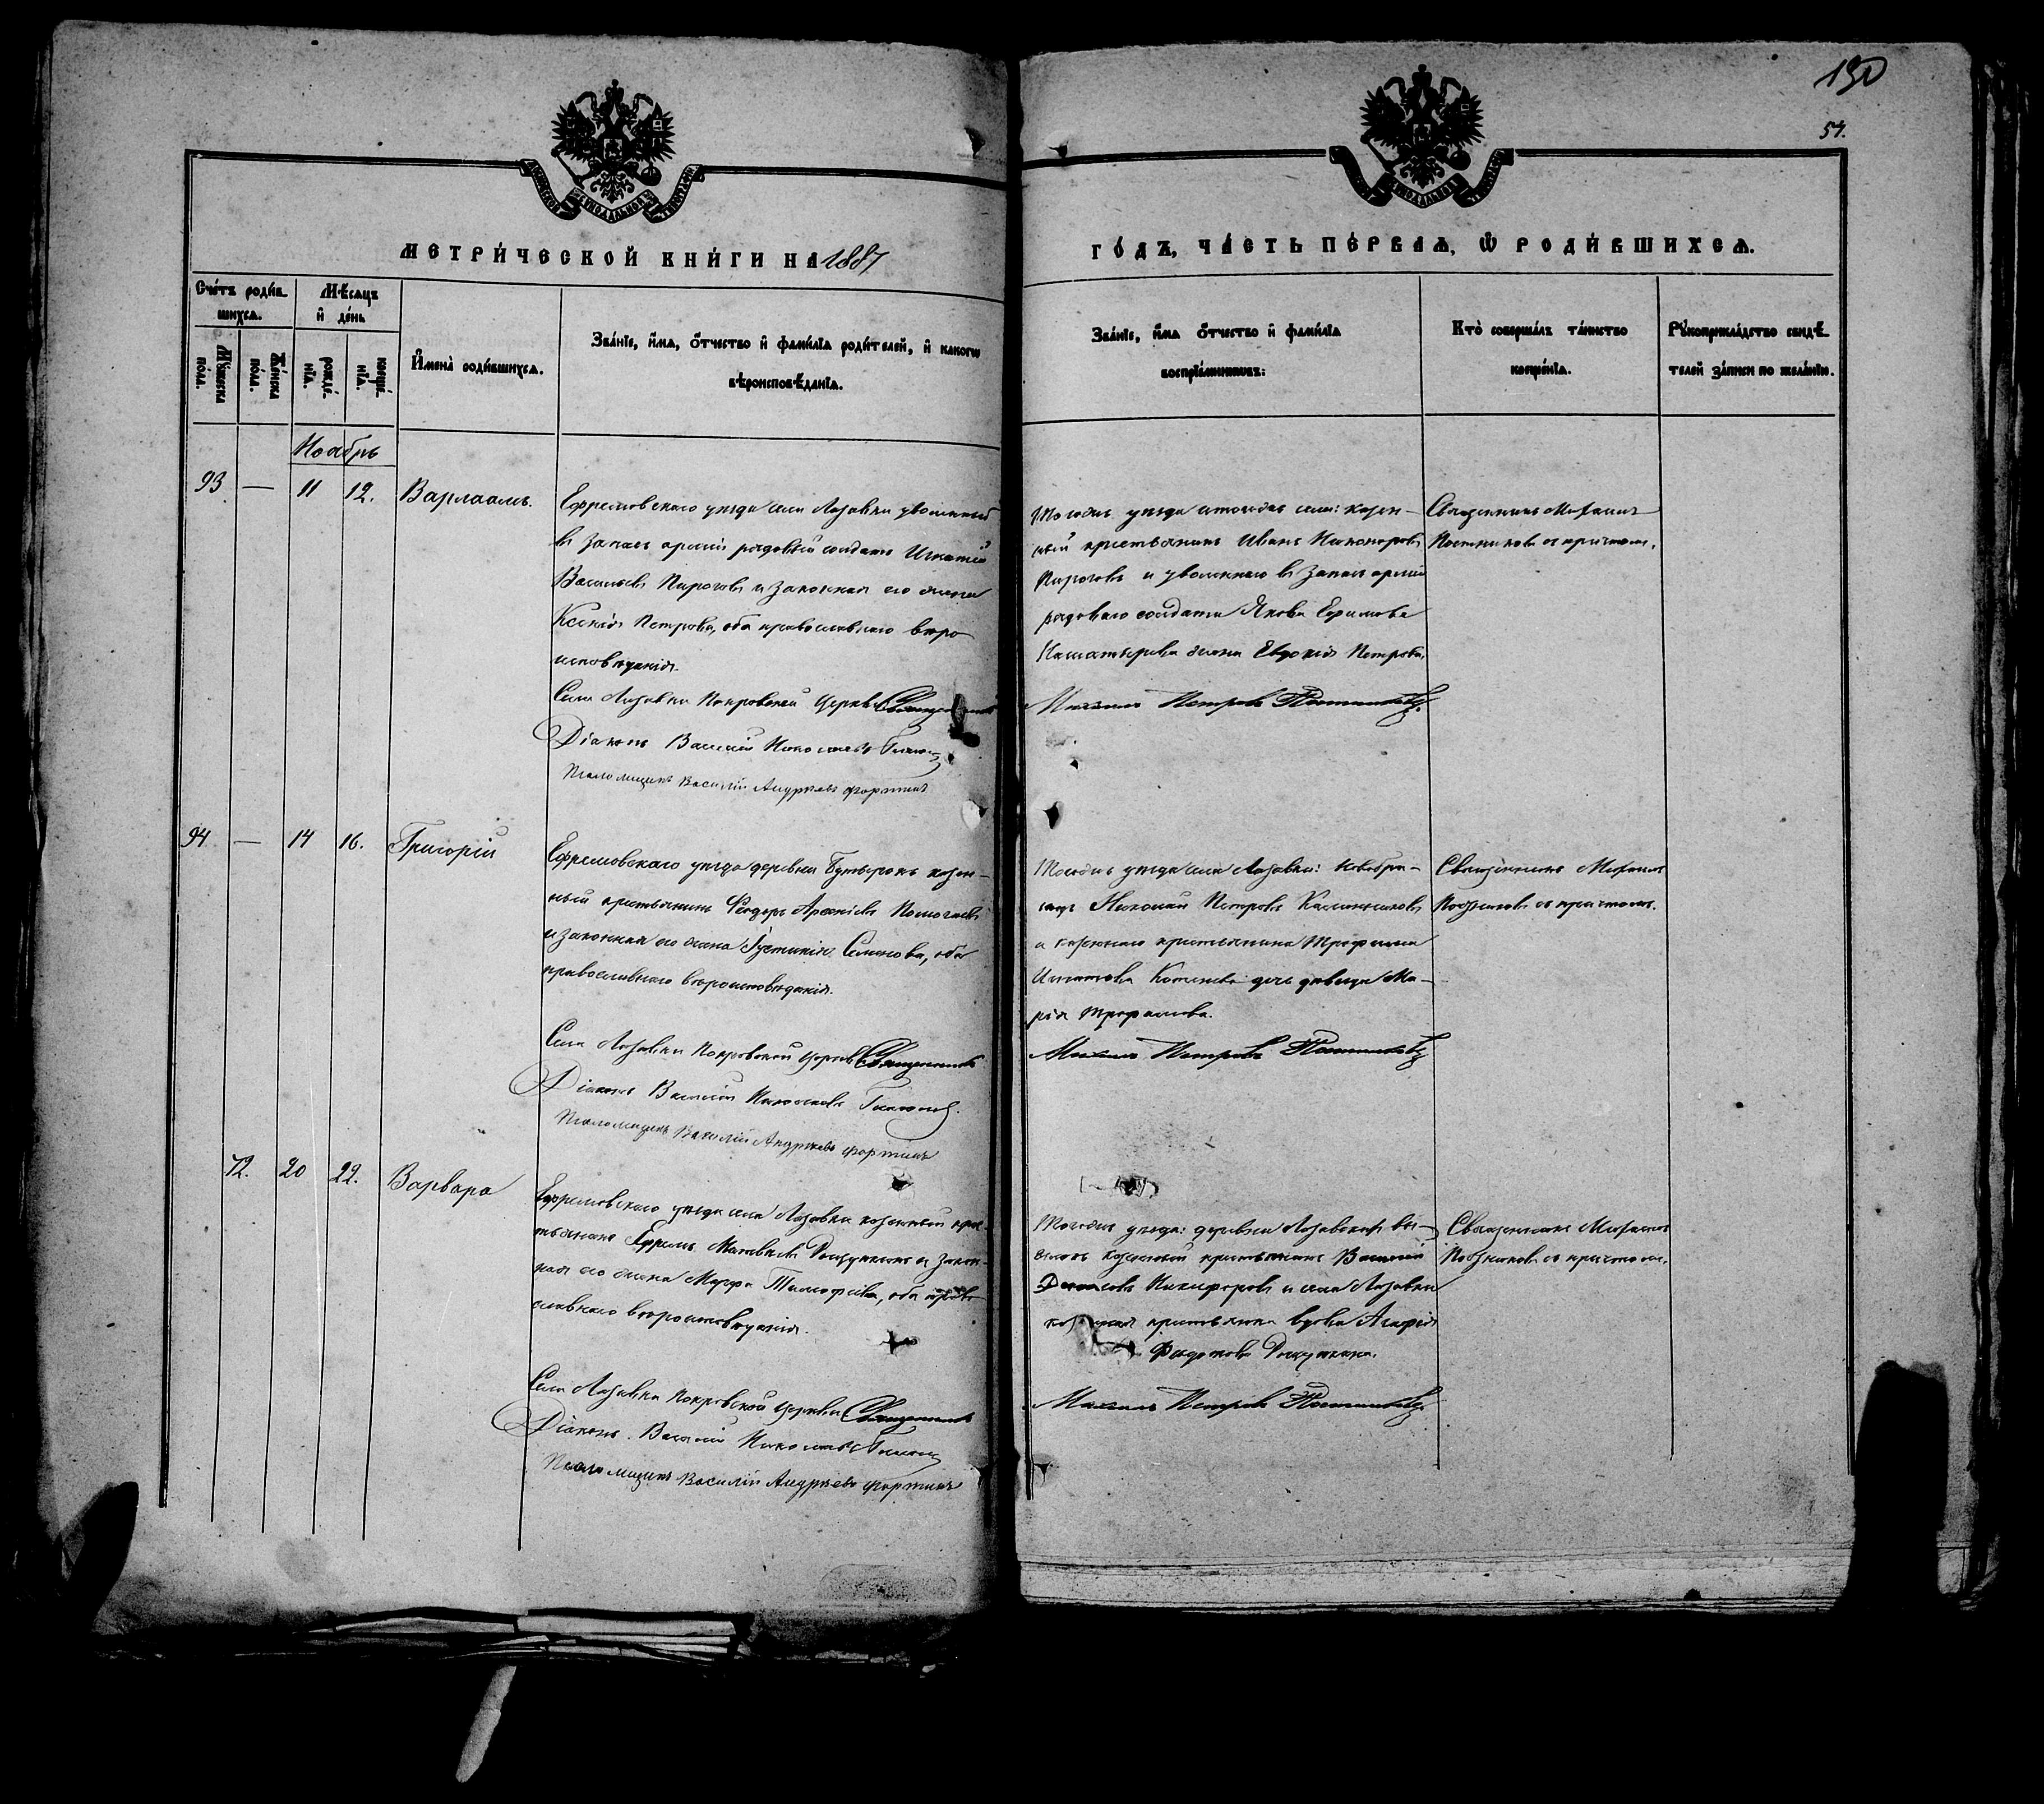 130
54.
МЕТРИЧЕСКОЙ КНИГИ НА 1887
ГОДЪ, ЧАСТЬ ПЕРВАЯ, Ѡ РОДИВШИХСЯ.
Счетъ родив-
шихся.
Мѣсяцъ
и день
Мужеска
пола.
Женска
пола.
рожде-
нія.
креще-
нія.
Имена родившихся.
Званіе, имя, отчество и фамилія родителей, и какого
вѣроисповѣданія.
Званіе, имя отчество и фамилія
воспріемниковъ:
Кто совершалъ таинство
крещенія.
Рукоприкладство свидѣ-
телей записи по желанію.
Ноябрь
93 — 11 12. Варлаамъ.
Ефремовскаго уѣзда села Лазавки уволенный
въ запасъ арміи рядовой солдатъ Игнатій
Васильевъ Пироговъ и законная его жена
Ксенія Петрова, оба православнаго вѣро
исповѣданія.
Села Лазавки Покровской Церкви Священникъ
Діаконъ Василій Николаевъ
Псаломщикъ Василій Андреевъ Фортинъ
Тогоже уѣзда и тогоже села: казен-
ный крестьянинъ Иванъ Никоноровъ
Пироговъ и уволеннаго въ запасъ арміи
рядоваго солдата Якова Ефимова
жена Евдокія Петрова.
Михаилъ Петровъ Постниковъ.
Священникъ Михаилъ
Постниковъ съ причтомъ.
94 — 14 16. Григорій
Ефремовскаго уѣзда деревни Бутырокъ казен-
ный крестьянинъ Феодоръ Арсеніевъ
и законная его жена Іустинія Семенова, оба
православнаго вѣроисповѣданія.
Села Лазавки Покровской Церкви Священникъ
Діаконъ Василій Николаевъ
Псаломщикъ Василій Андреевъ Фортинъ
Тогоже уѣзда села Лазавки: новобра-
нецъ Николай Петровъ Калашниковъ
и казеннаго крестьянина Трофима
Игнатова дочь дѣвица Ма-
рія Трофимова.
Михаилъ Петровъ Постниковъ
Священникъ Михаилъ
Постниковъ съ причтомъ.
72. 20 22. Варвара
Ефремовскаго уѣзда села Лазавки казенный крес-
тьянинъ Ефремъ Матвѣевъ и закон-
ная его жена Марфа Тимофеева, оба право
славнаго вѣроисповѣданія.
Села Лазавки Покровской Церкви Священникъ
Діаконъ Василій Николаевъ
Псаломщикъ Василій Андреевъ Фортинъ
Тогоже уѣзда: деревни Лазавскихъ вы-
селокъ казенный крестьянинъ Василій
Денисовъ Никифоровъ и села Лазавки
крестьянка вдова Агафія
Федотова
Михаилъ Петровъ Постниковъ.
Священникъ Михаилъ
Постниковъ съ причтомъ.